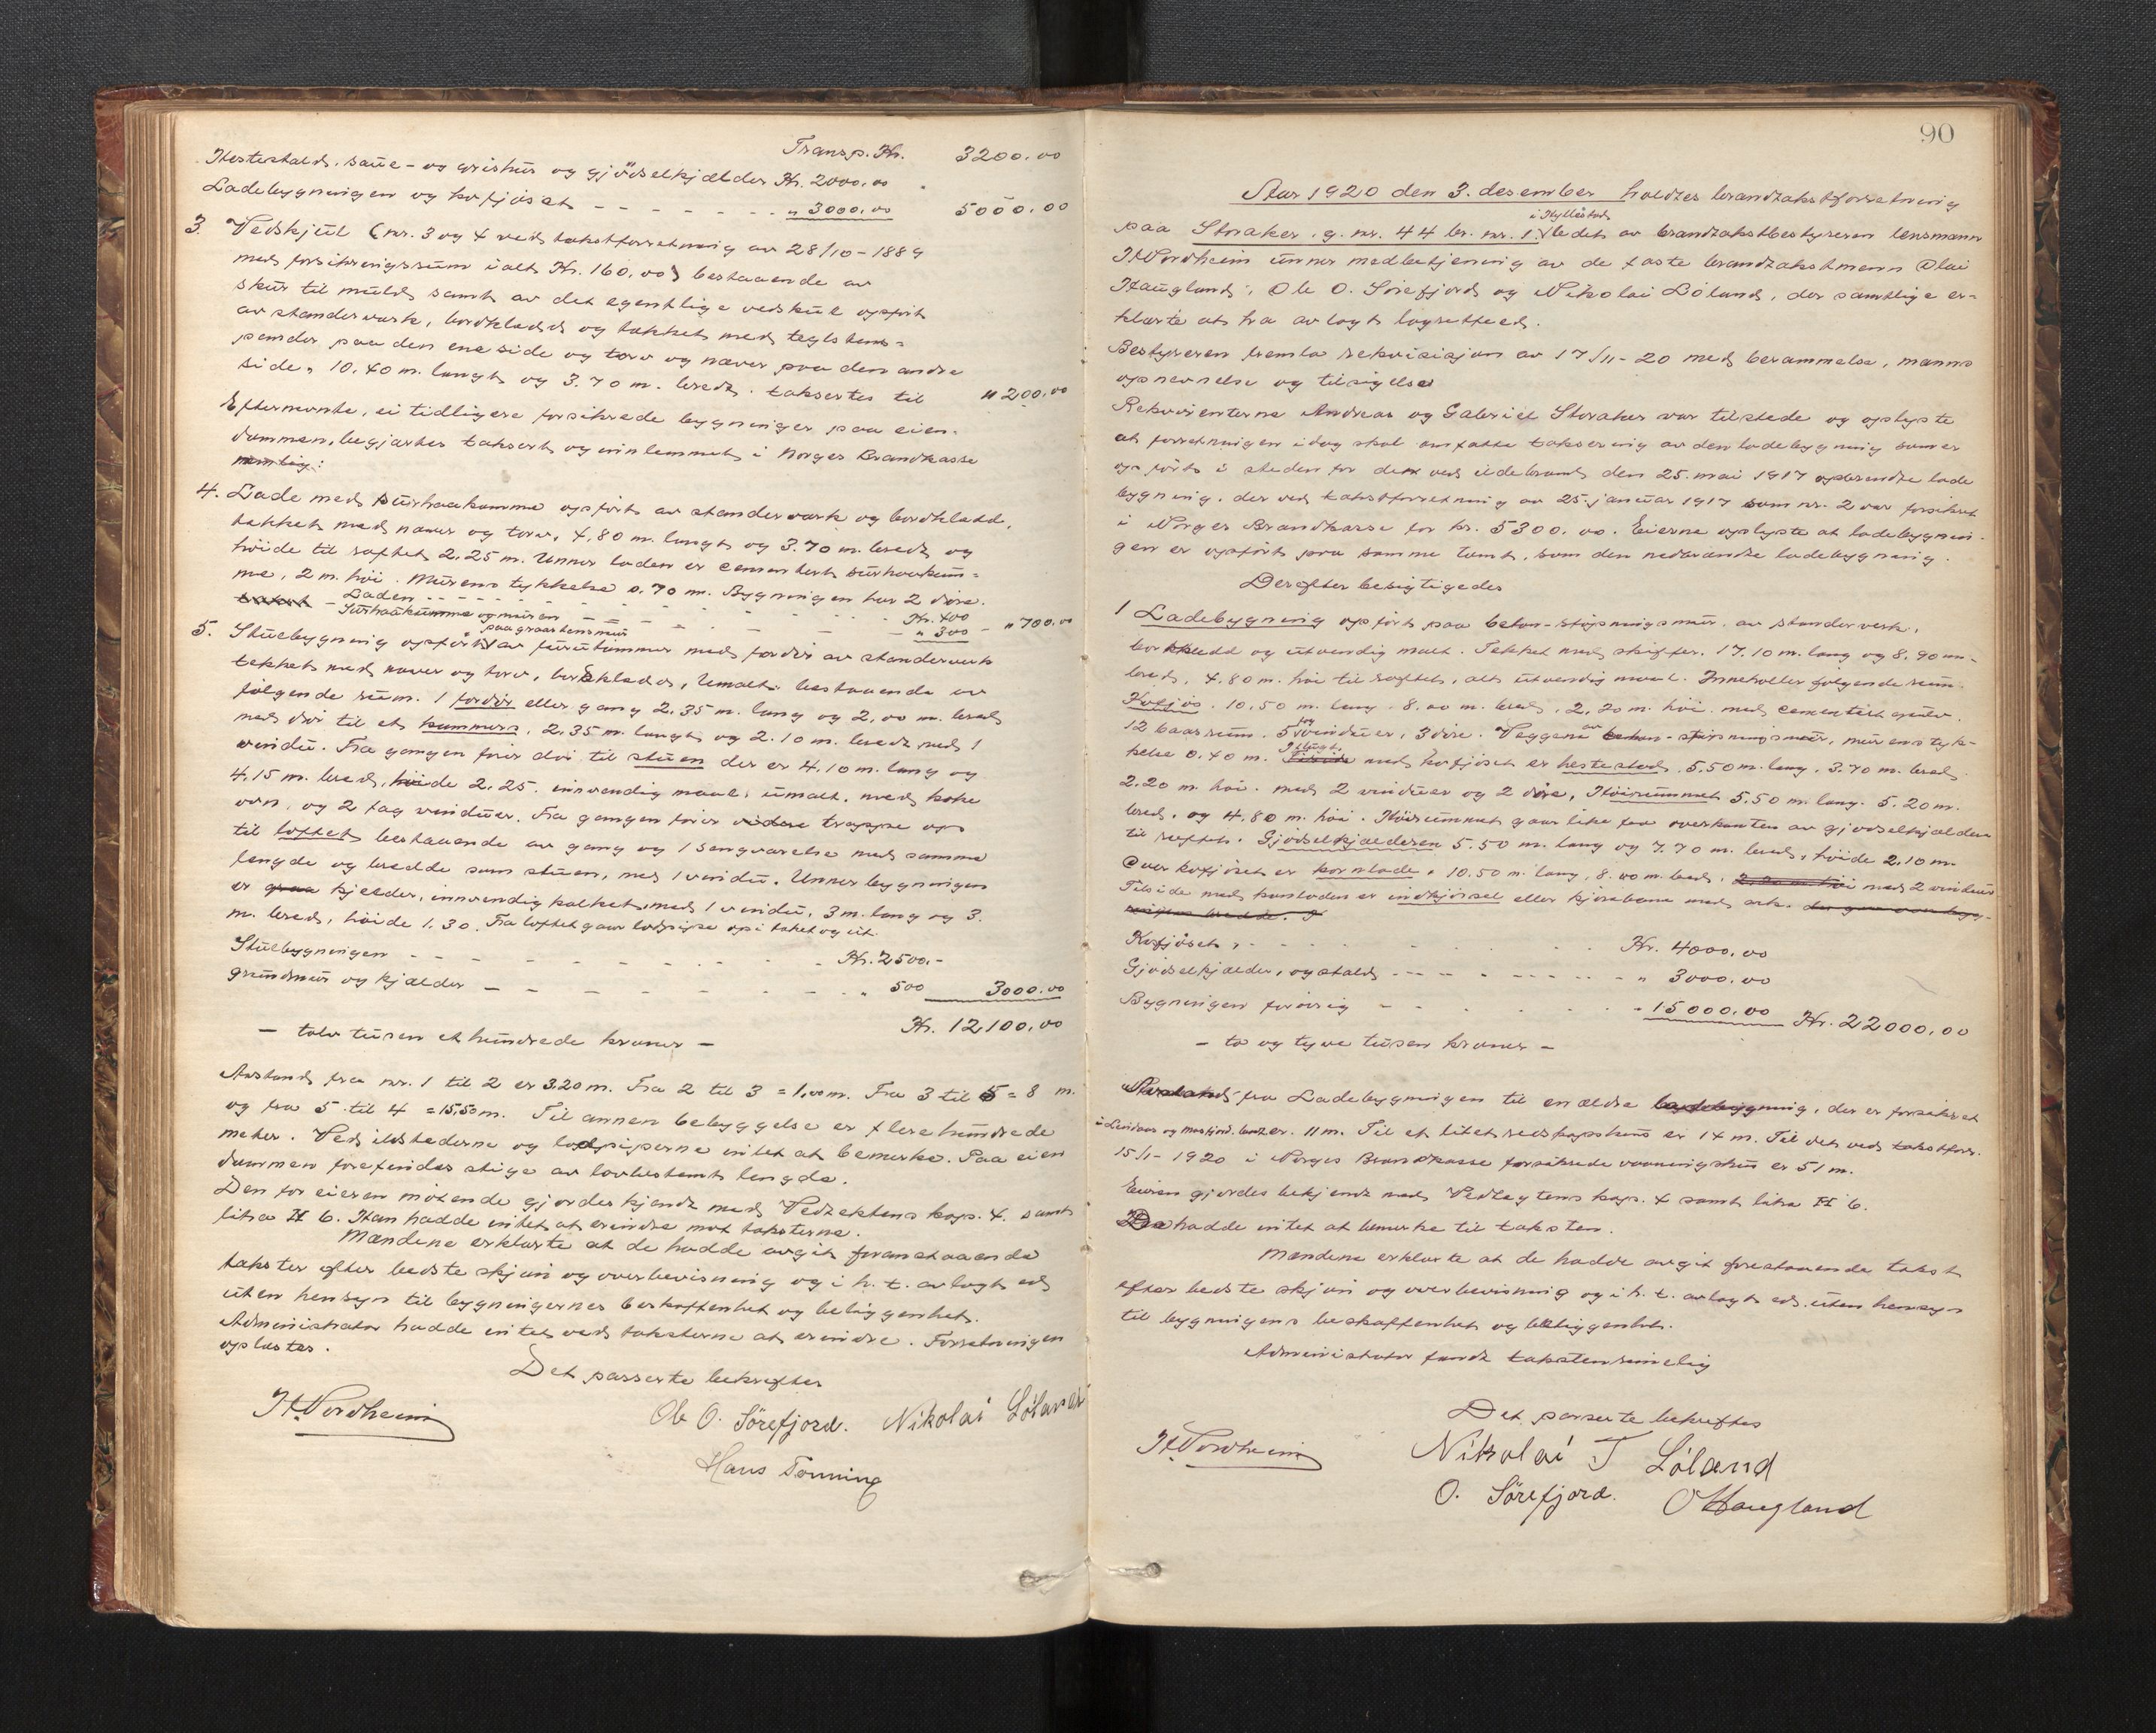 Transp. Kr. 3200.00
Hestestald, saue- og grishus og gjödselkjelder Kr. 2000.00
Ladebygningen og kofjöset - - - - - - - " 3000.00 5000.00
3. Vedskjul (nr. 3 og 4 ved takstforretning av 28/10-1889
med forsikringssum ialt Kr. 160.00) bestaaende av
skur til muld samt av det egentlige vedskul opfört
av standerverk, bordkledd og tekket med teglstens-
pander paa den ene side og torv og never paa den andre
side, 10.40 m. langt og 3.70 m. bredt. taksertes til " 200.00
Eftermente, ei tidligere forsikrede bygninger paa eien-
dommen, begjærtes taksert og innlemmet i Norges Brandkasse
nemlig:
4. Lade med surhaakumme opfört av standerverk og bordkledd,
tekket med never og torv, 4.80 m. langt og 3.70 m. bredt og
höide til raftet 2.25 m. Unner laden er cementert surhaakum-
me, 2 m. höi. Murens tykkelse 0.70 m. Bygningen har 2 döre.
takst Laden - - - - - - Kr. 400
Surhaakumme og muren - - - - " 300 - " 700.00
paa graastensmur
5. Stuebygning opfört av furutömmer med fordör av standerverk
tekket med never og torv, bordkledd, umalt. bestaaende av
fölgende rum. 1 fordör eller gang 2.35 m. lang og 2.00 m. bred
med dör til et kammers, 2.35 m. langt og 2.10 m. bredt med 1
vindu. Fra gangen förer dör til stuen der er 4.10 m. lang og
4.15 m. bred, höide 2.25. innvendig maal, umalt. med koke
ovn, og 2 fag vinduer. Fra gangen förer videre trappe op
til loftet bestaaende av gang og 1 sengværelse med samme
lengde og bredde som stuen, med 1 vindu. Unner bygningen
er graa kjelder, innvendig kalket, med 1 vindu, 3 m. lang og 3.
m. bred, höide 1.30. Fra loftet gaar lodpipe op i taket og ut.
Stuebygningen - - - - - - - - - Kr. 2500.-
grundmur og kjælder - - - - - - - - " 500 3000.00
Kr. 12,100.00
- tolv tusen et hundrede kroner -
Avstand fra nr. 1 til 2 er 3.20 m. Fra 2 til 3 = 1.00 m. Fra 3 til 5 = 8 m.
og fra 5 til 4 = 15.50 m. Til annen bebyggelse er flere hundrede
meter. Ved ildstederne og lodpiperne intet at bemerke. Paa eien
dommen forefindes stige av lovbestemt lengde.
Den for eieren mötende gjordes kjendt med Vedtektens kap. 4. samt
litra H 6. Han hadde intet at erindre mot taksterne.
Mændene erklærte at de hadde avgit foranstaaende
takster efter bedste skjön og overbevisning og i h. t. avlagt ed
uten hensyn til bygningernes beskaffenhet og beliggenhet.
Administrator hadde intet ved taksterne at erindre. Forretningen
oplæstes.
Det passerte bekreftes
H. Nordheim Ole O. Sörefjord. Nikolai Löland
Hans Tonning
90
Aar 1920 den 3. desember holdtes brandtakstforretning
i Hyllestad
paa Storaker, g. nr. 44 br. nr. 1. ledet av brandtakstbestyreren lensmann
H. Nordheim unner medbetjening av de faste brandtakstmenn Olai
Haugland, Ole O. Sörefjord og Nikolai Löland, der samtlige er-
klærte at ha avlagt lagretteed.
Bestyreren fremla rekvisisjon av 17/11-20 med berammelse, manns
opnevnelse og tilsigelse
Rekvirenterne Andreas og Gabriel Storaker var tilstede og oplyste
at forretningen idag skal omfatte taksering av den ladebygning som er
opfört i steden for den ved ildebrand den 25. mai 1917 opbrendte lade
bygning, der ved takstforretning av 25. januar 1917 som nr. 2 var forsikret
i Norges Brandkasse for kr. 5300.00. Eierne oplyste at ladebygnin-
gen er opfört paa samme tomt, som den nedbrændte ladebygning.
Derefter besigtigedes
1 Ladebygning opfört paa beton-stöpningsmur, av standerverk,
bordkledd og utvendig malt. Tekket med skifter. 17.10 m. lang og 8.90 m.
bred, 4.80 m. höi til raftet, alt utvendig maal. Inneholler fölgende rum.
Kofjös. 10.50 m. lang 8.00 m. bred, 2.20 m. höi. med cementert gulv.
12 baasrum, 5 fag vinduer, 3 döre. Veggene av beton-stöpningsmur, murens tyk-
kelse 0.40 m. I flugt med kofjöset er hestestad. 5.50 m. lang, 3.70 m. bred
2.20 m. höi. med 2 vinduer og 2 döre, Höirummet 5.50 m. lang. 5.20 m.
bred, og 4.80 m. höi. Höirummet gaar like fra overkanten av gjödselkjelderen
til raftet. Gjödselkjælderen 5.50 m. lang og 7.70 m. bred, höide 2.10 m.
Over kofjöset er kornlade. 10.50 m. lang, 8.00 m. bred, 2.20 m höi med 2 vinduer
Tilside med kornladen er indkjörsel eller kjörebane med ark.
Kofjöset, - - - - - - - Kr. 4000.00
Gjödselkjælder, og stald - - - - - - - " 3000.00
Bygningen forövrig - - - - - - " 15000.00 Kr. 22000.00
- to og tyve tusen kroner -
Avstand fra Ladebygningen til en ældre ladebygning, der er forsikret
i Lindaas og Masfjord. brandk er. 11 m. Til et litet redskapshus er 14 m. Til det ved takstforr.
15/1-1920 i Norges Brandkasse forsikrede vaaningshus er 51 m.
Eieren gjordes bekjendt med Vedtegtens kap. 4 samt litra H 6.
De hadde intet at bemerke til taksten.
Mændene erklærte at de hadde avgit forestaaende takst
efter bedste skjön og overbevisning og i h. t. avlagt ed. uten hensyn
til bygningens beskaffenhet og beliggenhet.
Administrator fandt taksten rimelig
Det passerte bekreftes
H. Nordheim Nikolai T Löland
O. Sörefjord. O Haugland